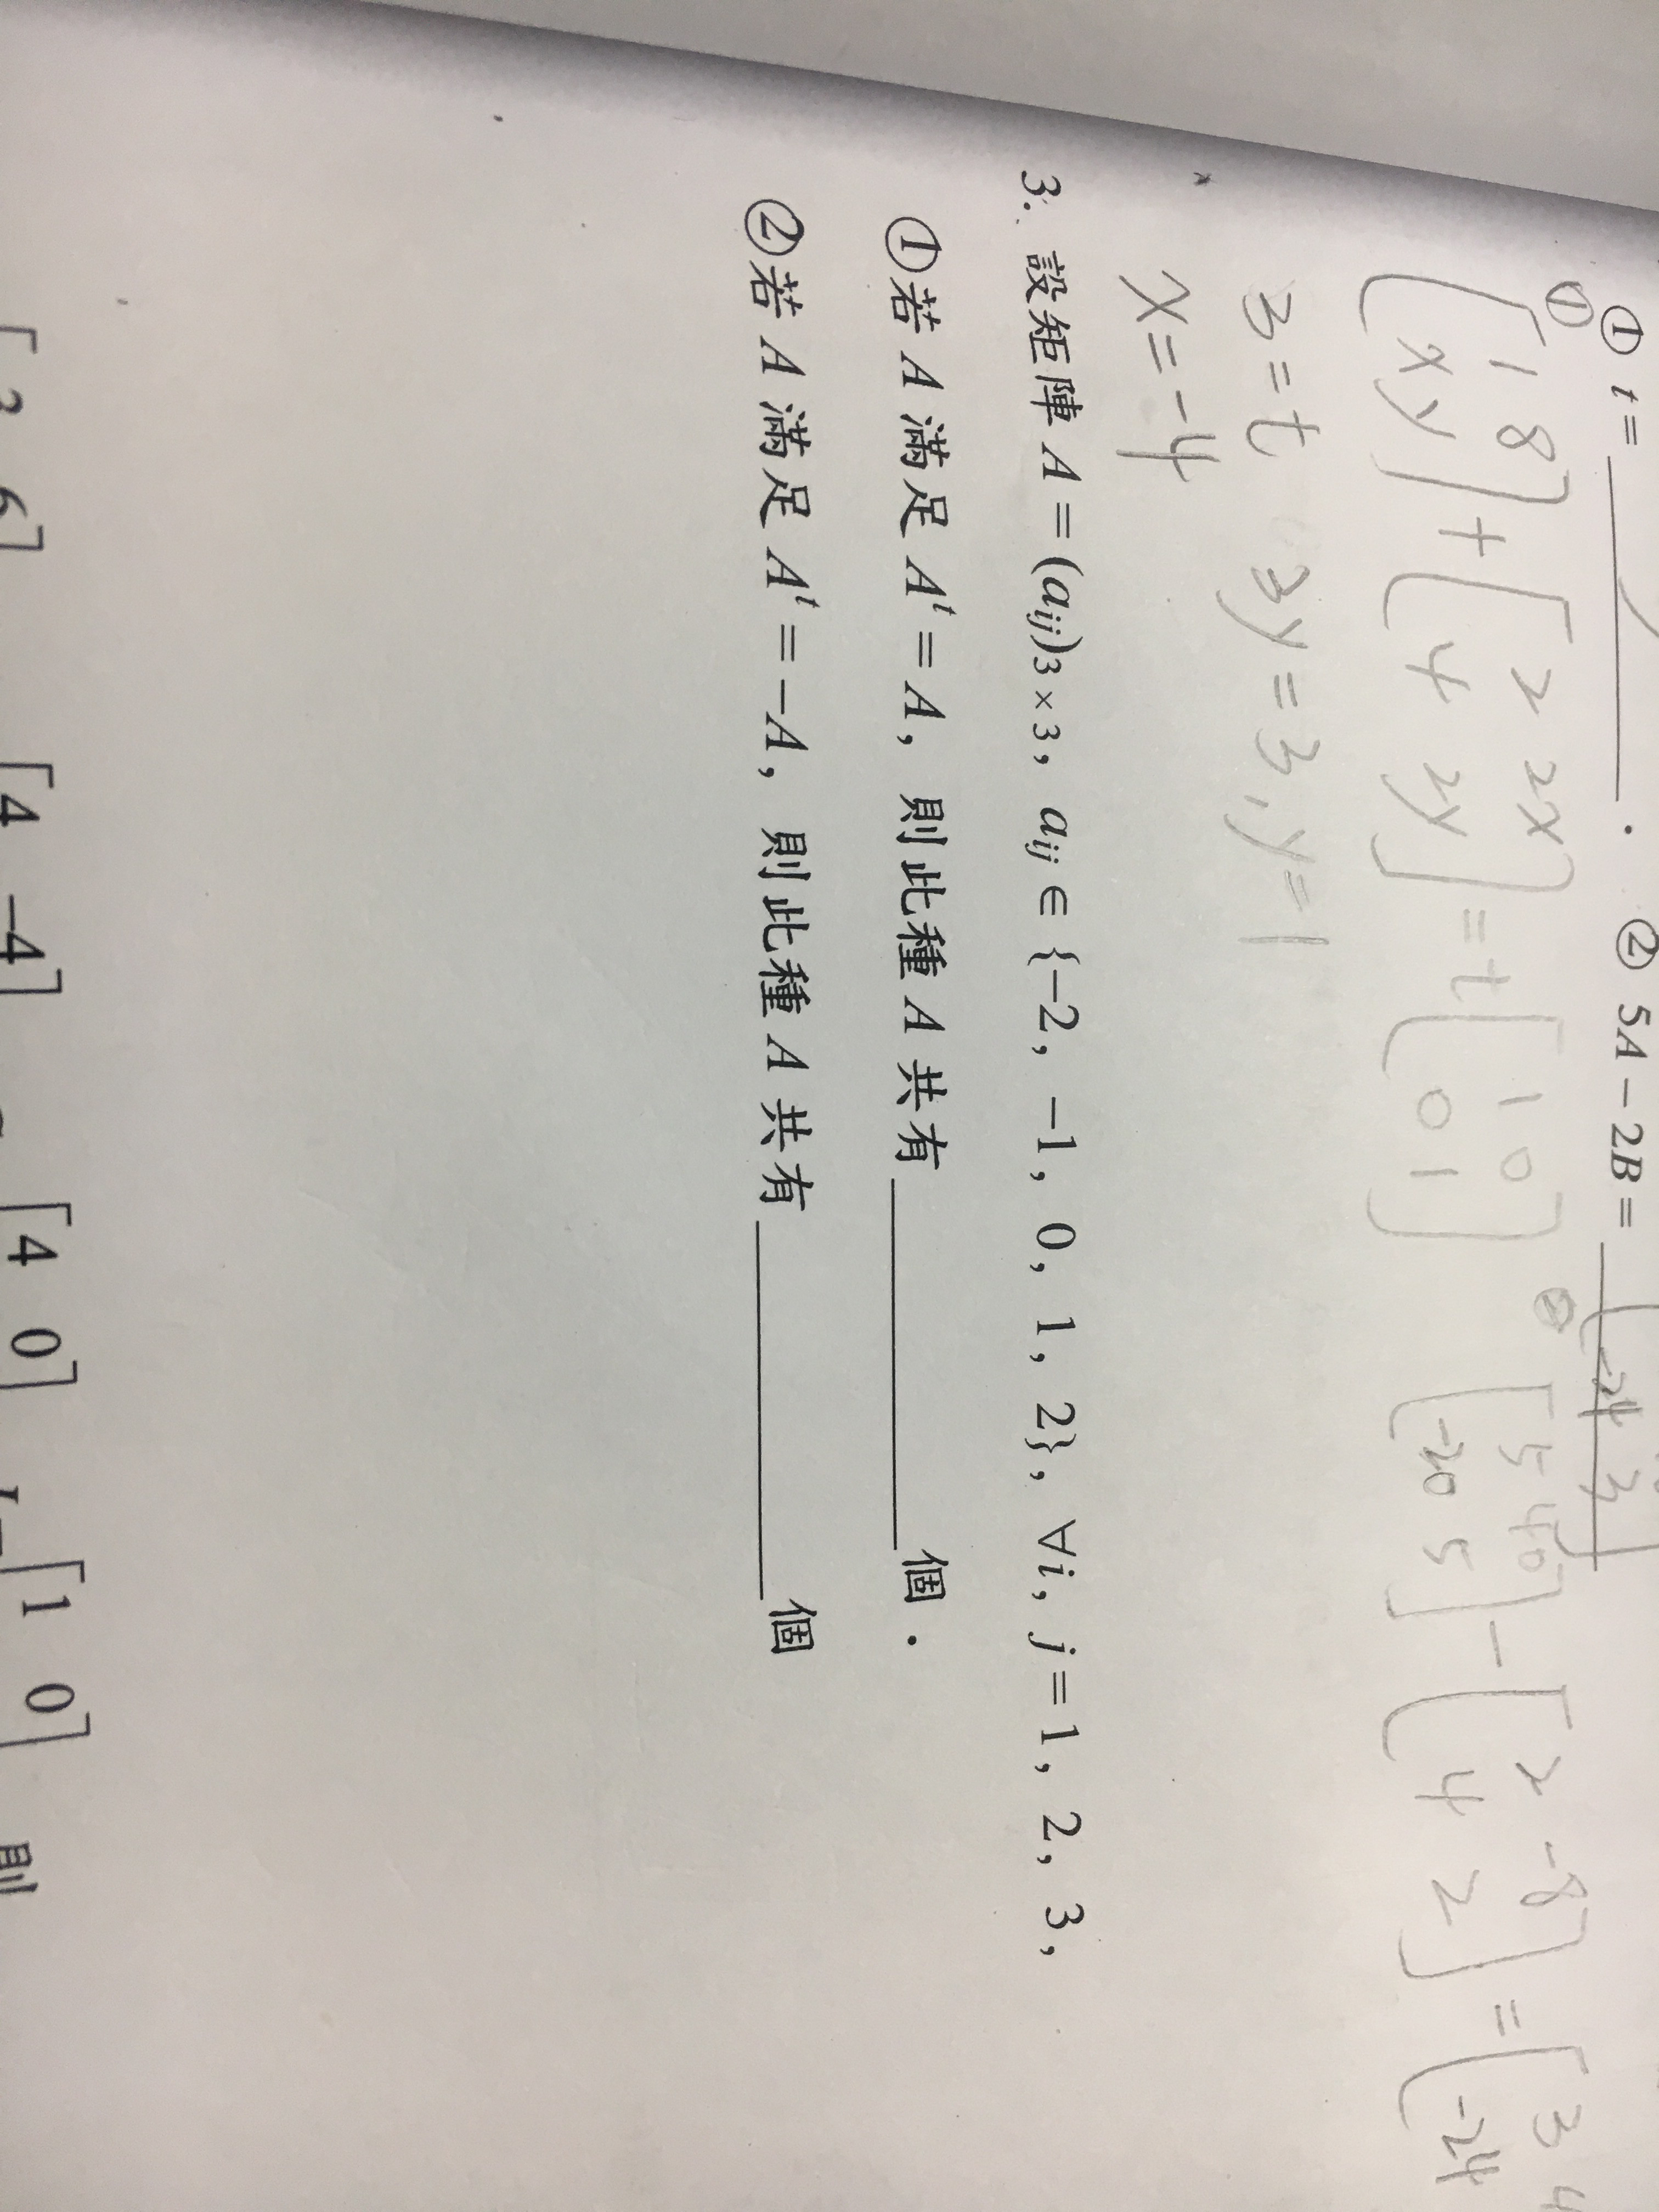 ① t = ② 5A − 2B = -24 3
① [1 8 + [2 2x = t [1 0 ② [5 40 − [2 -8 = [3 4
x y] 4 2y] 0 1] -20 5] 4 2] -24
3 = t 3y = 3, y = 1
x = -4
3. 設矩陣 A = (aij)3×3, aij ∈ {−2, −1, 0, 1, 2}, ∀i, j = 1, 2, 3,
①若 A 滿足 Aᵗ = A, 則此種 A 共有 個.
②若 A 滿足 Aᵗ = −A, 則此種 A 共有 個
[3 6] [4 −4] [4 0] [1 0] 則